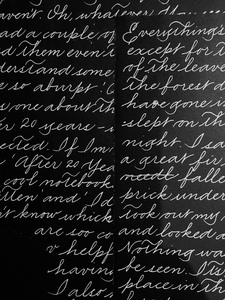 event. Oh, whatever
had a couple of
d them even t
derstand some
e so abrupt.
s, one about th
r 20 years
ected. If I'm
'After 20 Yea
cool notebook
tten and I'd
t know which
are soo co
helpf
having
I also
Everything's
except for t
of the leave
the forest d
have gone i
slept on the
night. I sa
a great fir
needl falle
prick under
took out my
and looked a
Nothing wa
be seen. I'is
place in th